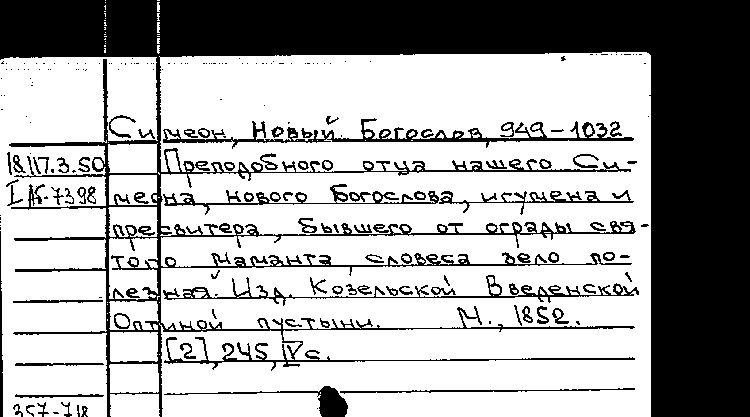 Симеон, Новый Богослов, 949-1032
18.117.3.50 Преподобного отца нашего Си-
I Аб-7398 меона, нового Богослова, игумена и
пресвитера, бывшего от ограды свя-
того Маманта, словеса зело по-
лезная. Изд. Козельской Введенской
Оптиной пустыни. М., 1852.
[2], 245, IV с.
357-718